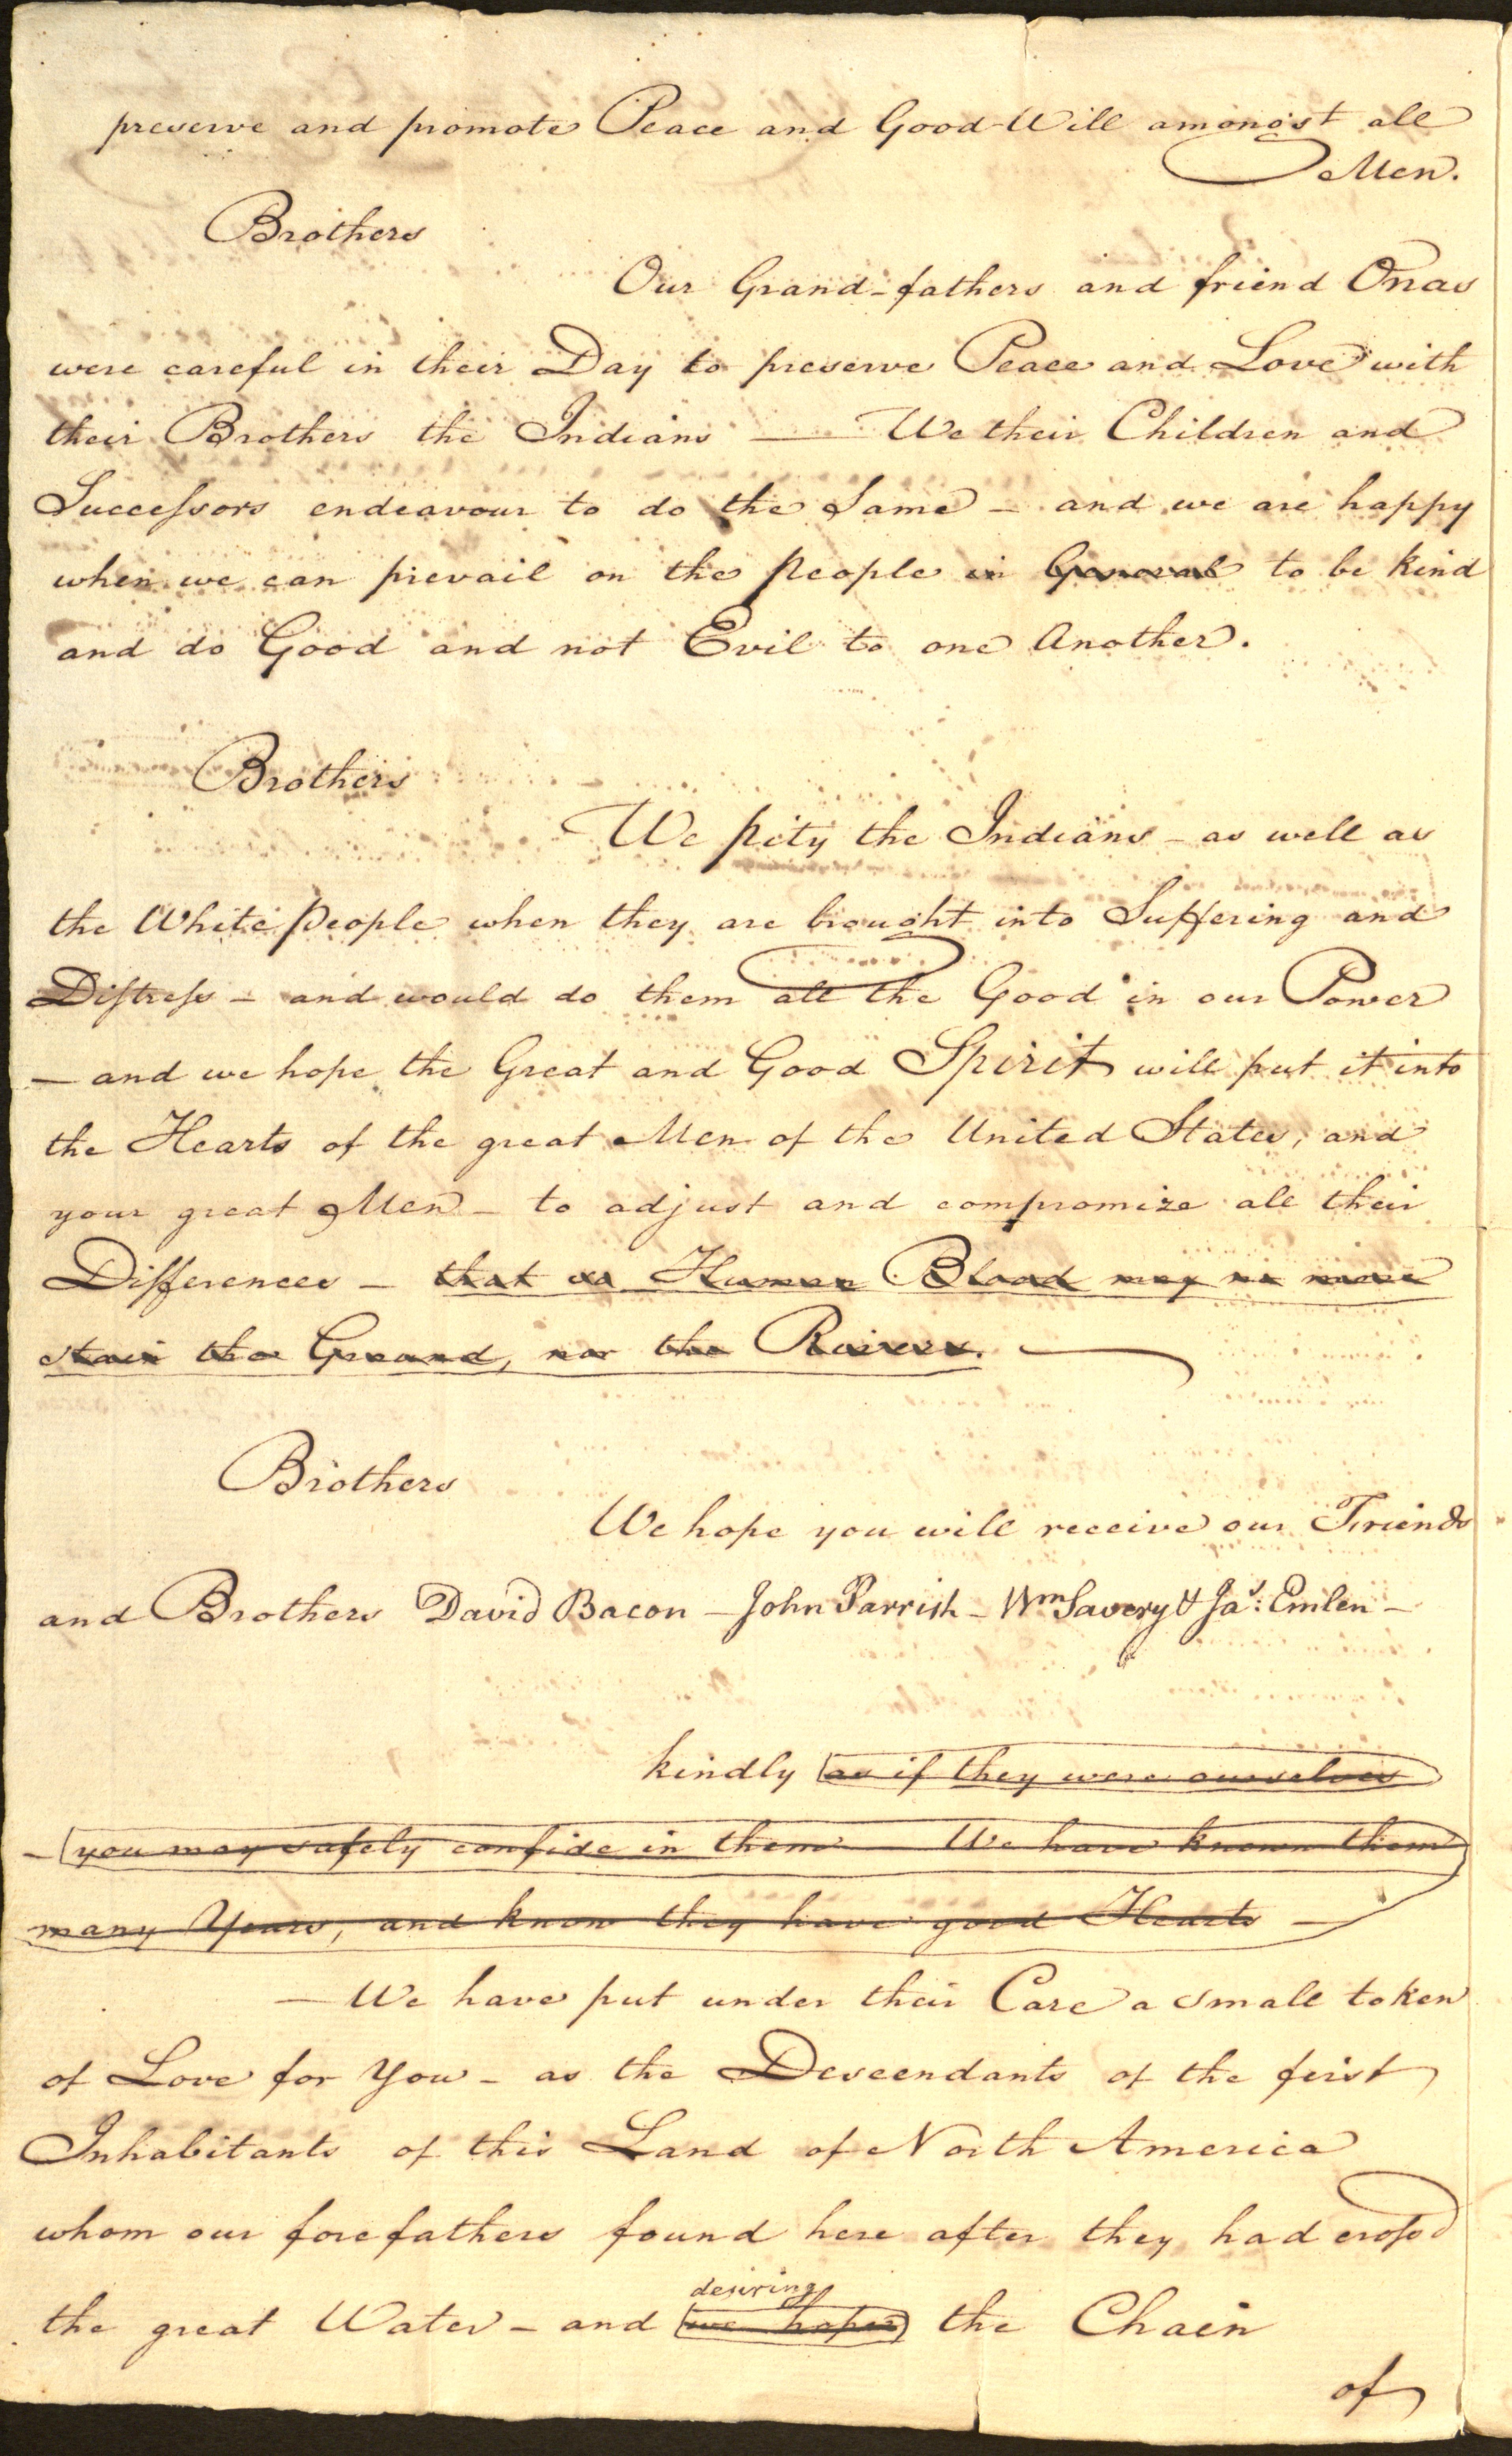 preserve and promote Peace and Good-Will amongst all
Men.
Brothers
Our Grand-fathers and friend Onas
were careful in their Day to preserve Peace and Love with
their Brothers the Indians — We their Children and
Succeſsors endeavour to do the Same – and we are happy
when we can prevail on the People in General to be kind
and do Good and not Evil to one Another.
Brothers
We pity the Indians – as well as
the White People when they are brought into Suffering and
Diſtreſs – and would do them all the Good in our Power
– and we hope the Great and Good Spirit will put it into
the Hearts of the great Men of the United States, and
your great Men – to adjust and compromize all their
Differences – that no Human Blood may no more
stain the Ground, nor the Rivers. —
Brothers
We hope you will receive our Friends
and Brothers David Bacon – John Parrish – Wm Savery & Jas: Emlen –
kindly as if they were ourselves
– you may safely confide in them We have known them
many Years, and know they have good Hearts –
– We have put under their Care a small token
of Love for You – as the Descendants of the first
Inhabitants of this Land of North America
whom our forefathers found here after they had croſsd
desiring
the great Water – and we hope the Chain
of